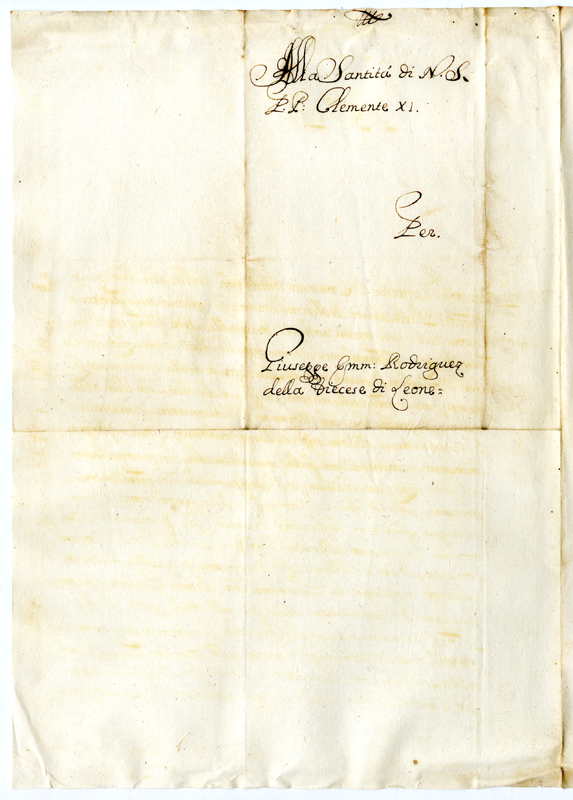 Alla Santitá di N. S.
P. P: Clemente XI.
Per.
Giuseppe Emm: Rodriguez
della Diecese di Leone=